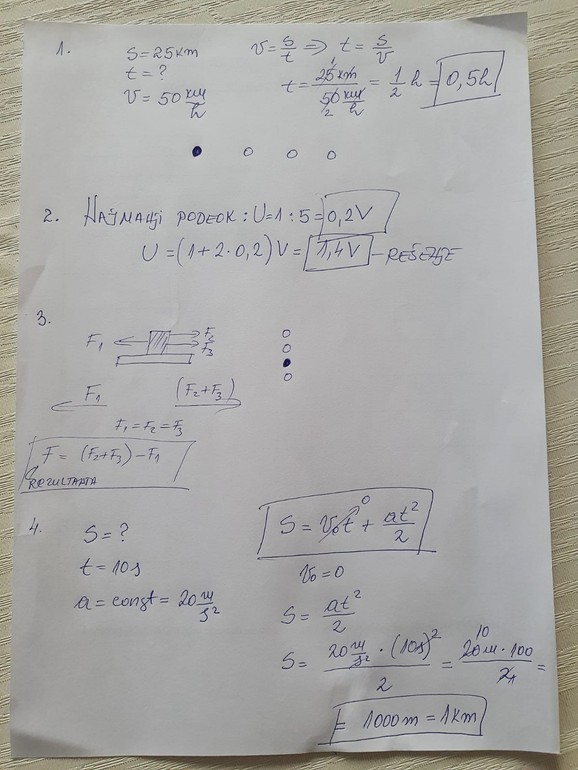 1.
S = 25 km
t = ?
v = 50 km/h
v = s/t => t = s/v
t = 25 km / 50 km/h = 1/2 h = 0,5h
2. Najmanji podeok: U = 1 : 5 = 0,2V
U = (1 + 2·0,2)V = 1,4V – REŠENJE
3.
F₁ F₂
F₃
F₁ (F₂+F₃)
F₁ = F₂ = F₃
F = (F₂+F₃) – F₁
REZULTANTA
4.
S = ?
t = 10s
a = const = 20 m/s²
S = v₀t + at²/2
0
v₀ = 0
S = at²/2
S = 20 m/s² · (10s)² / 2 = 20m · 100 / 2 =
10
1
= 1000m = 1km